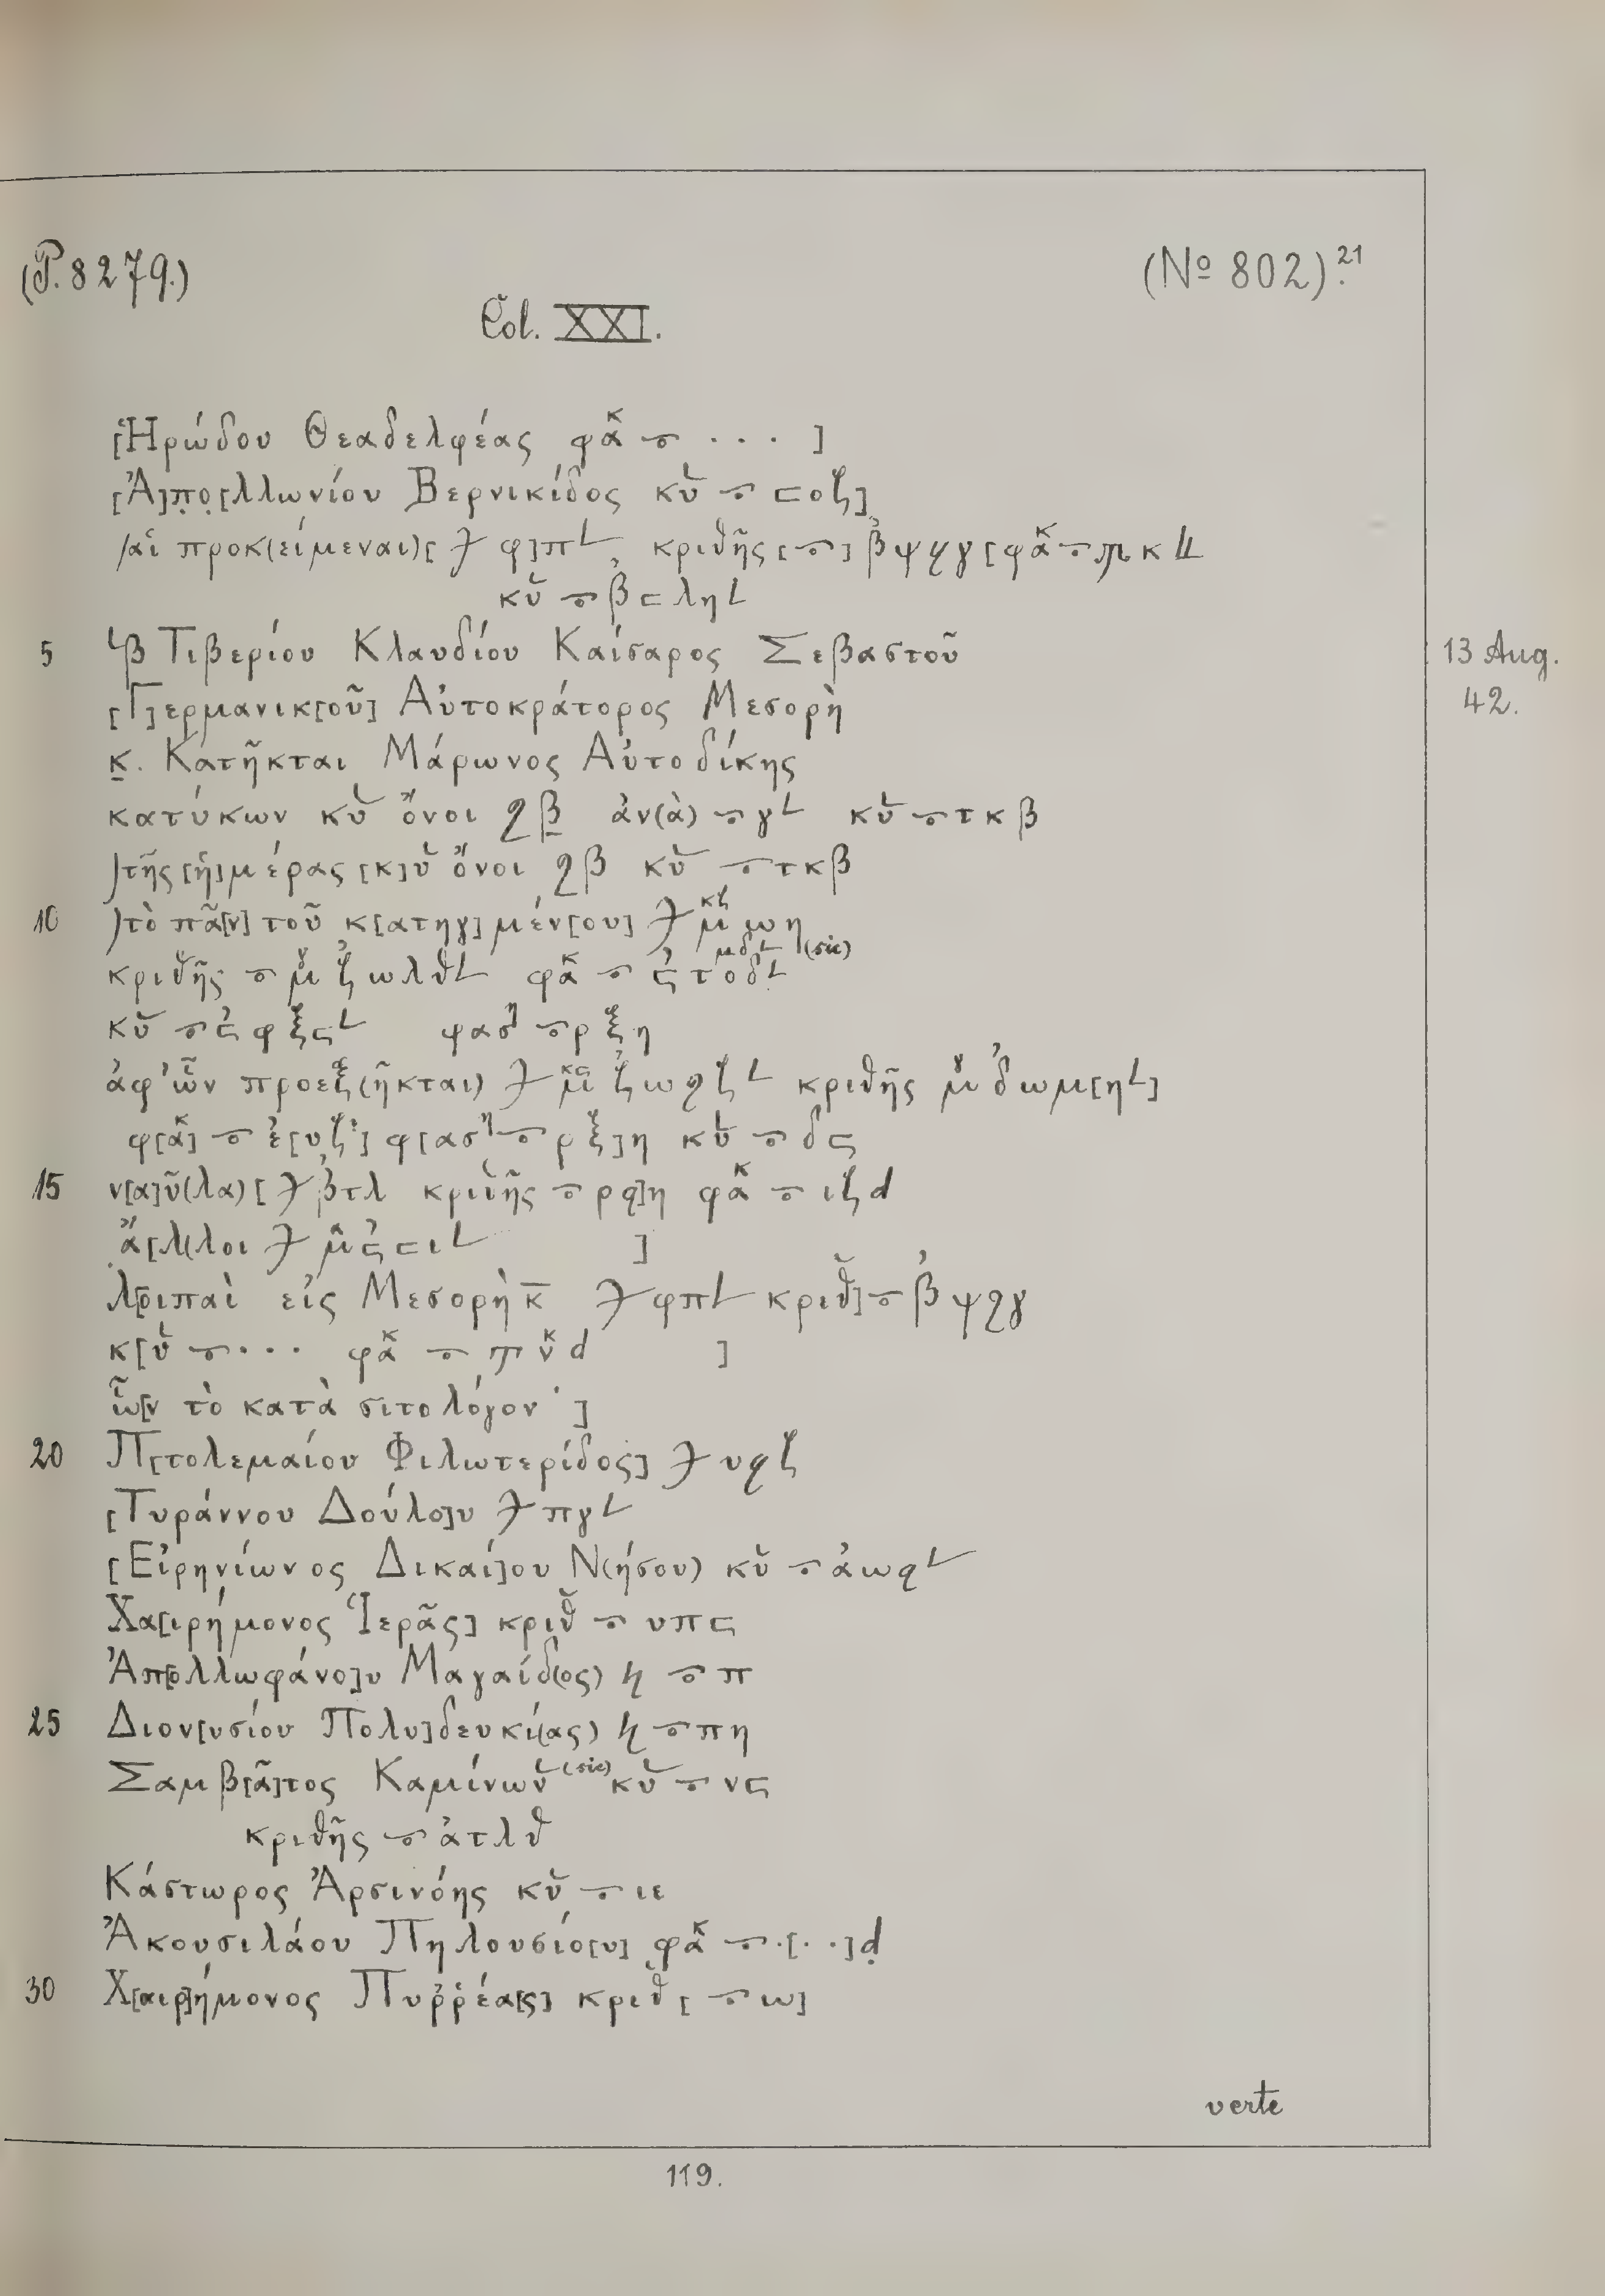 (P. 8279.)
(No 802).21
Col. XXI.
[Ἡρώδου Θεαδελφέας φακ 𐅺 . . . ]
[Ἀ]πο[λλωνίου Βερνικίδος κυ 𐅺 ϛοζ]
/αἱ προκ(είμεναι)[ φ]π𐅵, κριθῆς [𐅺] ͵βψϙγ [φακ 𐅺 κ
κυ 𐅺 ͵βϲλη𐅵
5 𐅹β Τιβερίου Κλαυδίου Καίσαρος Σεβαστοῦ
13 Aug.
42.
[Γ]ερμανικ[οῦ] Αὐτοκράτορος Μεσορὴ
κ. Κατῆκται Μάρωνος Αὐτοδίκης
κατύκων κυ ὄνοι ϙβ ἀν(ὰ) 𐅺 γ𐅵 κυ 𐅺 τκβ
)τῆς [ἡ]μέρας [κ]υ ὄνοι ϙβ κυ 𐅺 τκβ
10 )τὸ πᾶ[ν] τοῦ κ[ατηγ]μέν[ου] μκζ ωη
κριθῆς 𐅺 μγ ͵ζωλθ𐅵 φακ 𐅺 ͵ϛτοδ𐅵 μδ𐅵 (sic)
κυ 𐅺 ͵ϛφξϛ𐅵 φαση 𐅺 ρξη
ἀφ' ὧν προεξ(ῆκται) μκϛ ͵ζωϙζ𐅵 κριθῆς μγ ͵δωμ[η𐅵]
φ[ακ] 𐅺 ͵ε[υζ] φ[αση 𐅺 ρξ]η κυ 𐅺 δϲ
15 ν[α]ῦ(λα) [ ͵βτλ κριθῆς 𐅺 ρϙ]η φακ 𐅺 ιζd
ἄ[λ]λοι μα ͵ϛϲι𐅵 ]
λ[οιπαὶ εἰς Μεσορὴ κ̅ φπ𐅵 κριθ] 𐅺 ͵βψϙγ
κ[υ 𐅺 . . . φακ 𐅺 νκ d ]
ὧ[ν τὸ κατὰ σιτολόγον ]
20 Π[τολεμαίου Φιλωτερίδος] υϙζ
[Τυράννου Δούλο]υ πγ𐅵
[Εἰρηνίωνος Δικαί]ου Ν(ήσου) κυ 𐅺 ͵αωϙ𐅵
Χα[ιρήμονος Ἱερᾶς] κριθ 𐅺 υπϛ
Ἀπ[ολλωφάνο]υ Μαγαίδ(ος) 𐅺 π
25 Διον[υσίου Πολυ]δευκί(ας) 𐅺 πη
Σαμβ[ᾶ]τος Καμίνων (sic) κυ 𐅺 νϛ
κριθῆς 𐅺 ͵ατλθ
Κάστωρος Ἀρσινόης κυ 𐅺 ιε
Ἀκουσιλάου Πηλουσίο[υ] φακ 𐅺 .[. .]d
30 Χ[αιρ]ήμονος Πυῤῥέα[ς] κριθ [ 𐅺 ω]
verte
119.